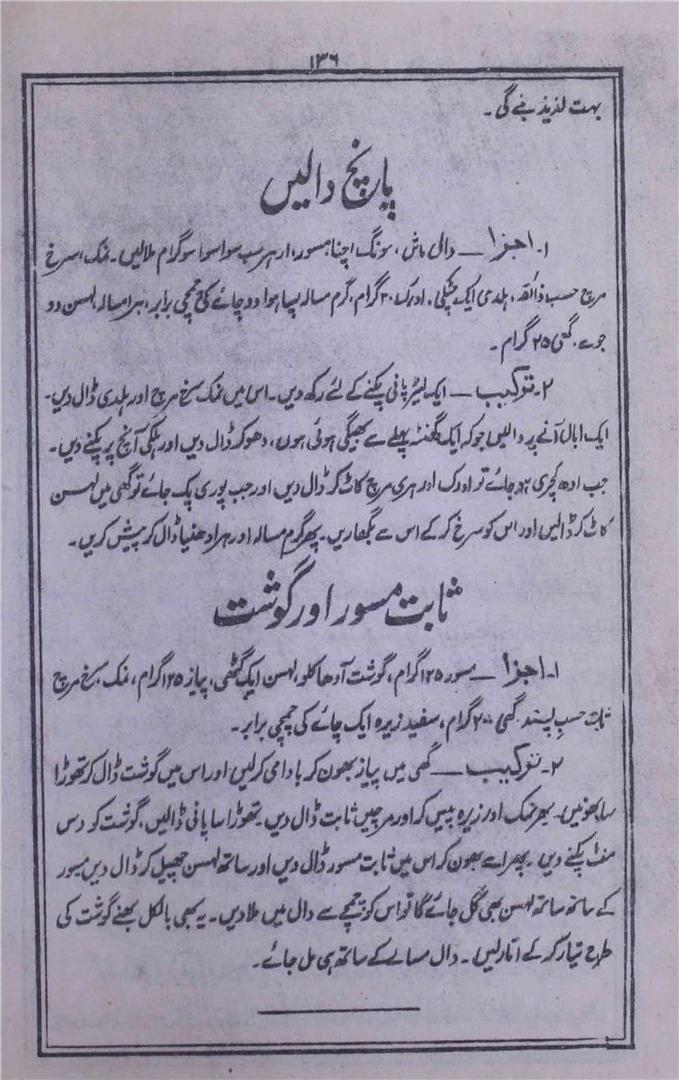 ۱۳۶
بہت لذیذ بنے گی۔
پانچ دالیں
۱۔ اجزا — دال ماش، مونگ، چنا، مسور، ارہر سب سوا سوا سو گرام ملا لیں۔ نمک، سرخ
مرچ حسب ذائقہ، ہلدی ایک چٹکی، ادرک ۲۰ گرام، گرم مسالہ پسا ہوا دو چائے کی چمچی برابر، ہرا مسالہ، لہسن دو
جوے، گھی ۲۵ گرام۔
۲۔ ترکیب — ایک لیٹر پانی پکنے کے لئے رکھ دیں۔ اس میں نمک سرخ مرچ اور ہلدی ڈال دیں۔
ایک ابال آنے پر دالیں جو کہ ایک گھنٹہ پہلے سے بھیگی ہوئی ہوں، دھو کر ڈال دیں اور ہلکی آنچ پر پکنے دیں۔
جب ادھ کچری ہو جائے تو ادرک اور ہری مرچ کاٹ کر ڈال دیں اور جب پوری پک جائے تو گھی میں لہسن
کاٹ کر ڈالیں اور اس کو سرخ کر کے اس سے بگھاریں۔ پھر گرم مسالہ اور ہرا دھنیا ڈال کر پیش کریں۔
ثابت مسور اور گوشت
۱۔ اجزا — مسور ۱۲۵ گرام، گوشت آدھا کلو، لہسن ایک گٹھی، پیاز ۱۲۵ گرام، نمک سرخ مرچ
ثابت حسبِ پسند گھی ۲۰۰ گرام، سفید زیرہ ایک چائے کی چمچی برابر۔
۲۔ ترکیب — گھی میں پیاز بھون کر بادامی کر لیں اور اس میں گوشت ڈال کر تھوڑا
سا بھونیں۔ پھر نمک اور زیرہ پیس کر اور مرچیں ثابت ڈال دیں۔ تھوڑا سا پانی ڈالیں، گوشت کو دس
منٹ پکنے دیں۔ پھر اسے بھون کر اس میں ثابت مسور ڈال دیں اور ساتھ لہسن چھیل کر ڈال دیں مسور
کے ساتھ ساتھ لہسن بھی گل جائے گا تو اس کو چمچے سے دال میں ملا دیں۔ یہ بھی بالکل بھنے گوشت کی
طرح تیار کر کے اتار لیں۔ دال مسالے کے ساتھ ہی مل جائے۔